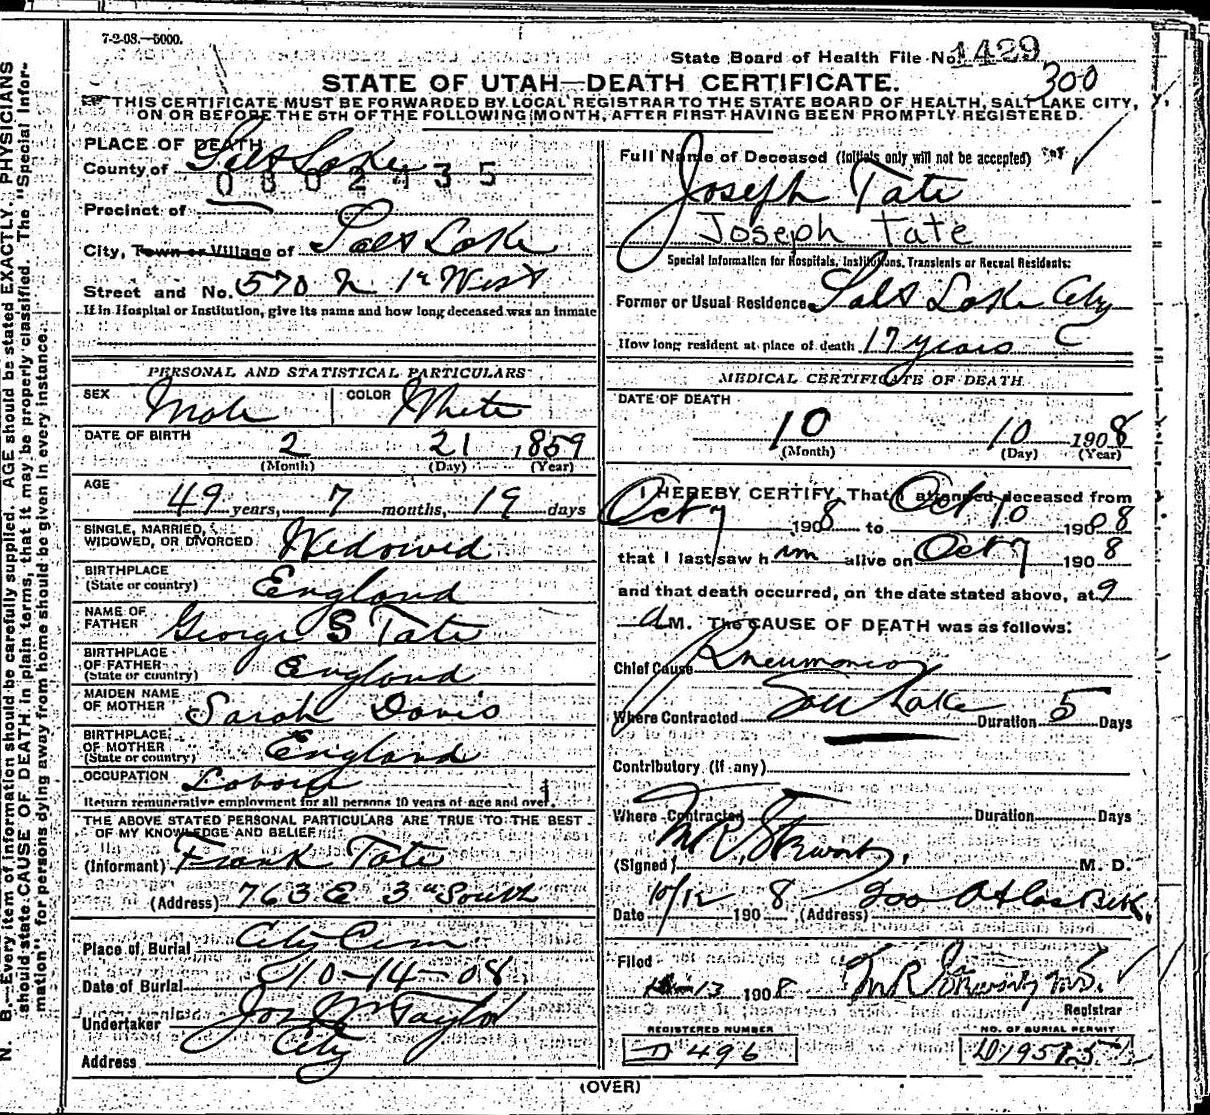 7-2-08.—5000.
State Board of Health File No. 1429
300
STATE OF UTAH—DEATH CERTIFICATE.
THIS CERTIFICATE MUST BE FORWARDED BY LOCAL REGISTRAR TO THE STATE BOARD OF HEALTH, SALT LAKE CITY,
ON OR BEFORE THE 5TH OF THE FOLLOWING MONTH, AFTER FIRST HAVING BEEN PROMPTLY REGISTERED.
PLACE OF DEATH
County of Salt Lake
0802435
Precinct of
City, Town or Village of Salt Lake
Street and No. 570 N 1st West
If in Hospital or Institution, give its name and how long deceased was an inmate
PERSONAL AND STATISTICAL PARTICULARS
SEX Male COLOR White
DATE OF BIRTH 2 21 1859
(Month) (Day) (Year)
AGE 49 years, 7 months, 19 days
SINGLE, MARRIED,
WIDOWED, OR DIVORCED Widowed
BIRTHPLACE
(State or country) England
NAME OF
FATHER George S Tate
BIRTHPLACE
OF FATHER
(State or country) England
MAIDEN NAME
OF MOTHER Sarah Davis
BIRTHPLACE
OF MOTHER
(State or country) England
OCCUPATION Laborer
Return remunerative employment for all persons 10 years of age and over.
THE ABOVE STATED PERSONAL PARTICULARS ARE TRUE TO THE BEST
OF MY KNOWLEDGE AND BELIEF
(Informant) Frank Tate
(Address) 763 E 3rd South
Place of Burial City Cem
Date of Burial 10-14-08
Undertaker Jos Wm Taylor
Address City
Full Name of Deceased (Initials only will not be accepted)
Joseph Tate
Joseph Tate
Special Information for Hospitals, Institutions, Transients or Recent Residents:
Former or Usual Residence Salt Lake City
How long resident at place of death 17 years
MEDICAL CERTIFICATE OF DEATH
DATE OF DEATH
10 10 1908
(Month) (Day) (Year)
I HEREBY CERTIFY, That I attended deceased from
Oct 7 1908 to Oct 10 1908
that I last saw him alive on Oct 7 1908
and that death occurred, on the date stated above, at 9
A M. The CAUSE OF DEATH was as follows:
Chief Cause Pneumonia
Where Contracted Salt Lake Duration 5 Days
Contributory (if any)
Where Contracted Duration Days
(Signed) M. D.
Date 10/12 1908 (Address) 200 Atlas Blk.
Filed
13 1908
Registrar
REGISTERED NUMBER
D 496
NO. OF BURIAL PERMIT
(OVER)
N. B.—Every item of information should be carefully supplied. AGE should be stated EXACTLY. PHYSICIANS
should state CAUSE OF DEATH in plain terms, that it may be properly classified. The "Special Infor-
mation" for persons dying away from home should be given in every instance.